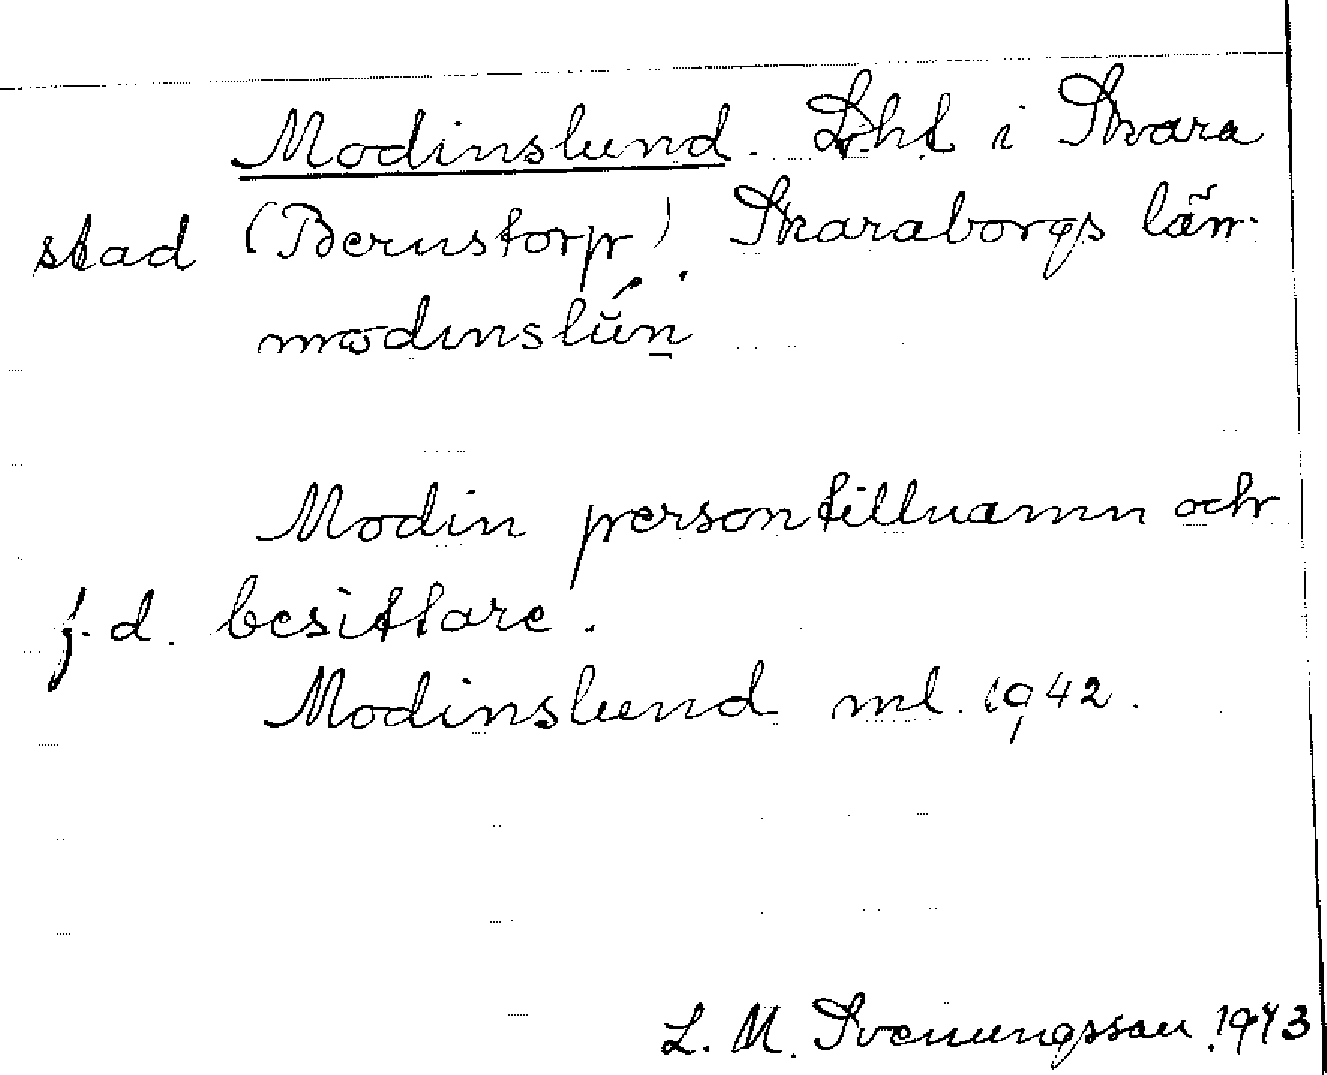 Modinslund. Lht i Skara
stad (Bernstorp). Skaraborgs län.
modinslún
Modin persontillnamn och
f.d. besittare.
Modinslund ml. 1942.
L. M. Svenungsson. 1943